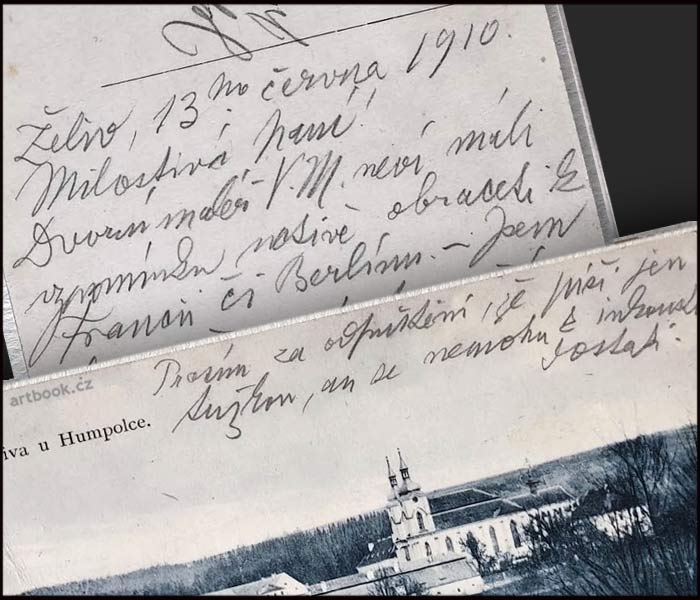 Želiv, 13ho června 1910.
Milostivá paní!
Dvorní malíř V. M. neví má-li
vzpomínku našivě obraceti k
Francii či Berlínu. – Jsem
Prosím za odpuštění, že píši jen
tužkou, an se nemohu k inkoustu
dostati.
artbook.cz
iva u Humpolce.